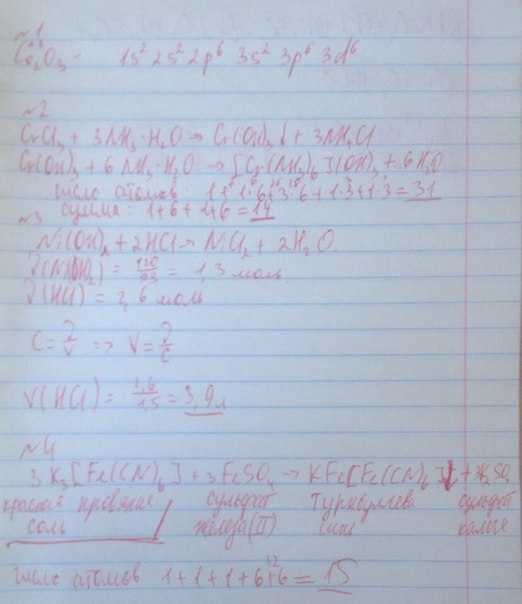 №1
Co₂⁺³O₃ – 1s² 2s² 2p⁶ 3s² 3p⁶ 3d⁶
№2
CrCl₃ + 3NH₃·H₂O → Cr(OH)₃↓ + 3NH₄Cl
Cr(OH)₃ + 6NH₃·H₂O → [Cr(NH₃)₆](OH)₃ + 6H₂O
число атомов: 1+1·6+3·6+1·3+1·3=31
сумма: 1+6+1+6=14
№3
Ni(OH)₂ + 2HCl → NiCl₂ + 2H₂O
ν(Ni(OH)₂) = 120/93 = 1,3 моль
ν(HCl) = 2,6 моль
C=ν/V => V=ν/C
V(HCl) = 2,6/1,5 = 3,9л
№4
3K₃[Fe(CN)₆] + 3FeSO₄ → KFe[Fe(CN)₆]↓ + K₂SO₄
красная кровяная сульфат Турнбулева сульфат
соль железа(II) синь калия
число атомов 1+1+1+6+6=15
12